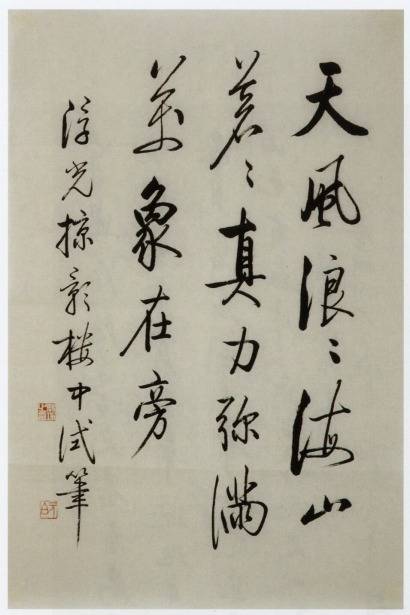 天風浪〻海山
蒼〻真力弥満
萬象在旁
浮光掠影樓中試筆